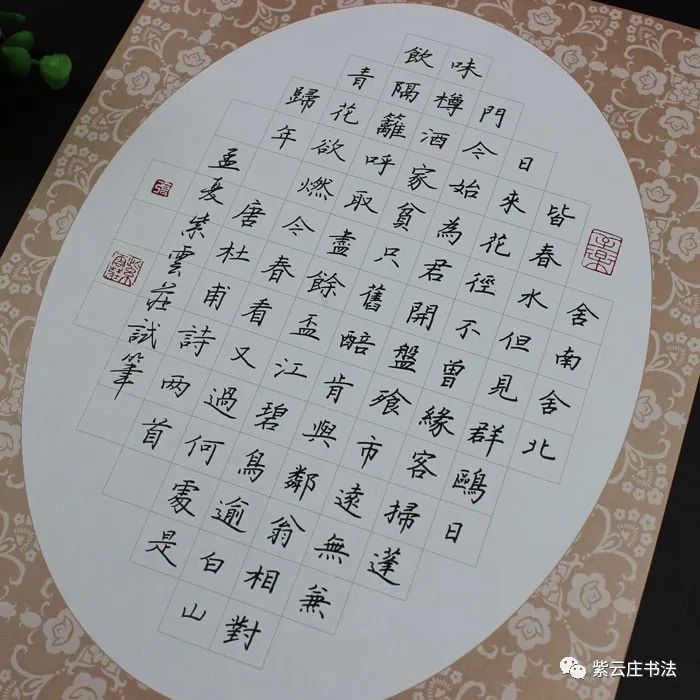 舍南舍北
皆春水但見群鷗日
日來花徑不曾緣客掃蓬
門今始為君開盤飧市遠無兼
味樽酒家貧只舊醅肯與鄰翁相對
飲隔籬呼取盡餘盃江碧鳥逾白山
青花欲燃今春看又過何處是
歸年 唐杜甫詩兩首
孟夏紫雲莊試筆
紫云庄书法